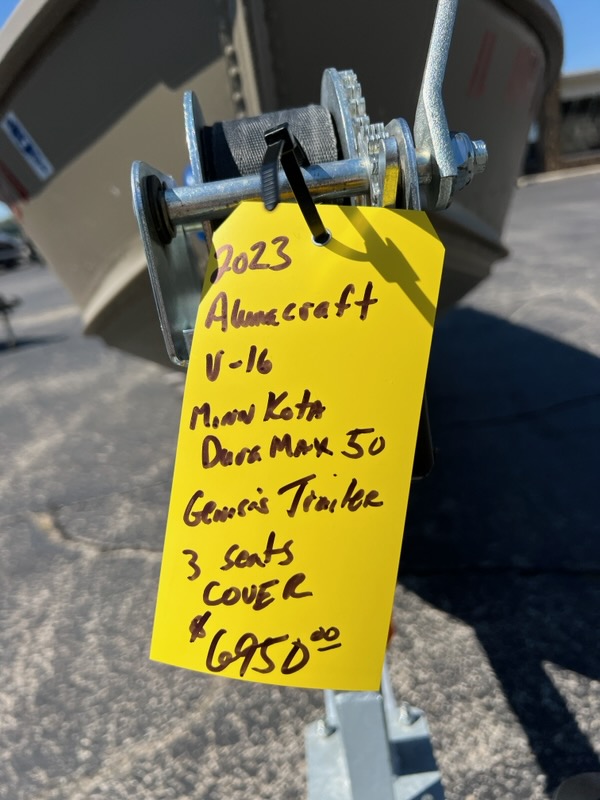 2023
Alumacraft
V-16
Minn Kota
Dura Max 50
Genesis Trailer
3 seats
COVER
$6950.00